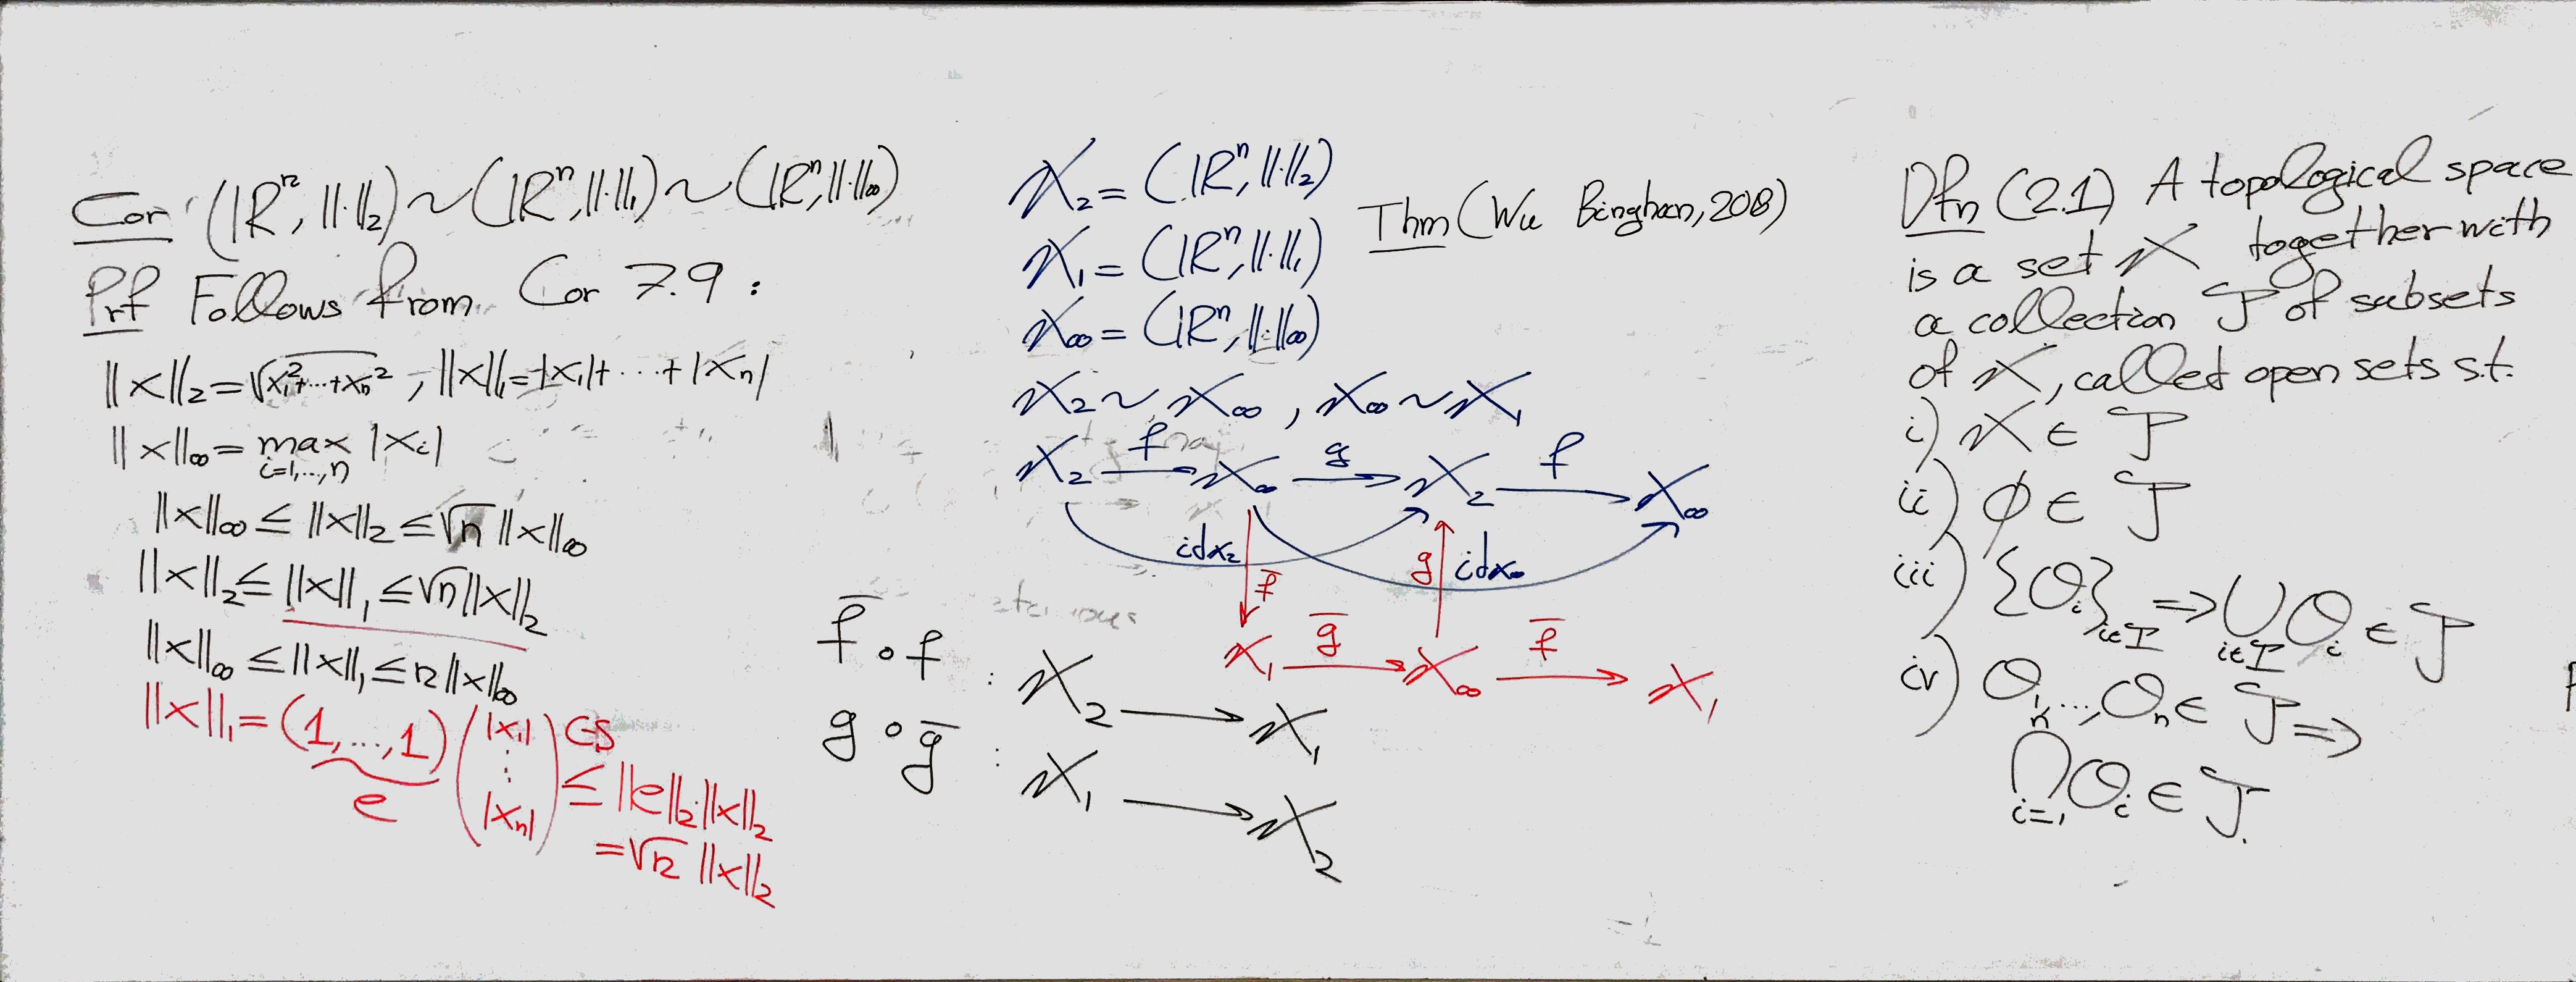 Cor (ℝⁿ, ||·||₂) ~ (ℝⁿ, ||·||₁) ~ (ℝⁿ, ||·||∞)
Prf Follows from Cor 7.9 :
||x||₂ = √(x₁²+···+xₙ²) , ||x||₁ = |x₁| + ··· + |xₙ|
||x||∞ = max |xᵢ|
i=1,...,n
||x||∞ ≤ ||x||₂ ≤ √n ||x||∞
||x||₂ ≤ ||x||₁ ≤ √n ||x||₂
||x||∞ ≤ ||x||₁ ≤ n ||x||∞
||x||₁ = (1, ..., 1) (|x₁| ⋮ |xₙ|) CS ≤ ||e||₂ · ||x||₂
e
= √n ||x||₂
X₂ = (ℝⁿ, ||·||₂)
X₁ = (ℝⁿ, ||·||₁)
X∞ = (ℝⁿ, ||·||∞)
Thm (Wu Binghan, 2018)
X₂ ~ X∞ , X∞ ~ X₁
f g f
X₂ → X∞ → X₂ → X∞
id_X₂ g id_X∞
f̄
ḡ f̄
X₁ → X∞ → X₁
f̄ ∘ f : X₂ → X₁
g ∘ ḡ : X₁ → X₂
Dfn (2.1) A topological space
is a set X together with
a collection 𝒯 of subsets
of X, called open sets s.t.
i) X ∈ 𝒯
ii) ϕ ∈ 𝒯
iii) {Oᵢ}_{i∈I} ⇒ ⋃_{i∈I} Oᵢ ∈ 𝒯
iv) O₁, ..., Oₙ ∈ 𝒯 ⇒
⋂ⁿ_{i=1} Oᵢ ∈ 𝒯.